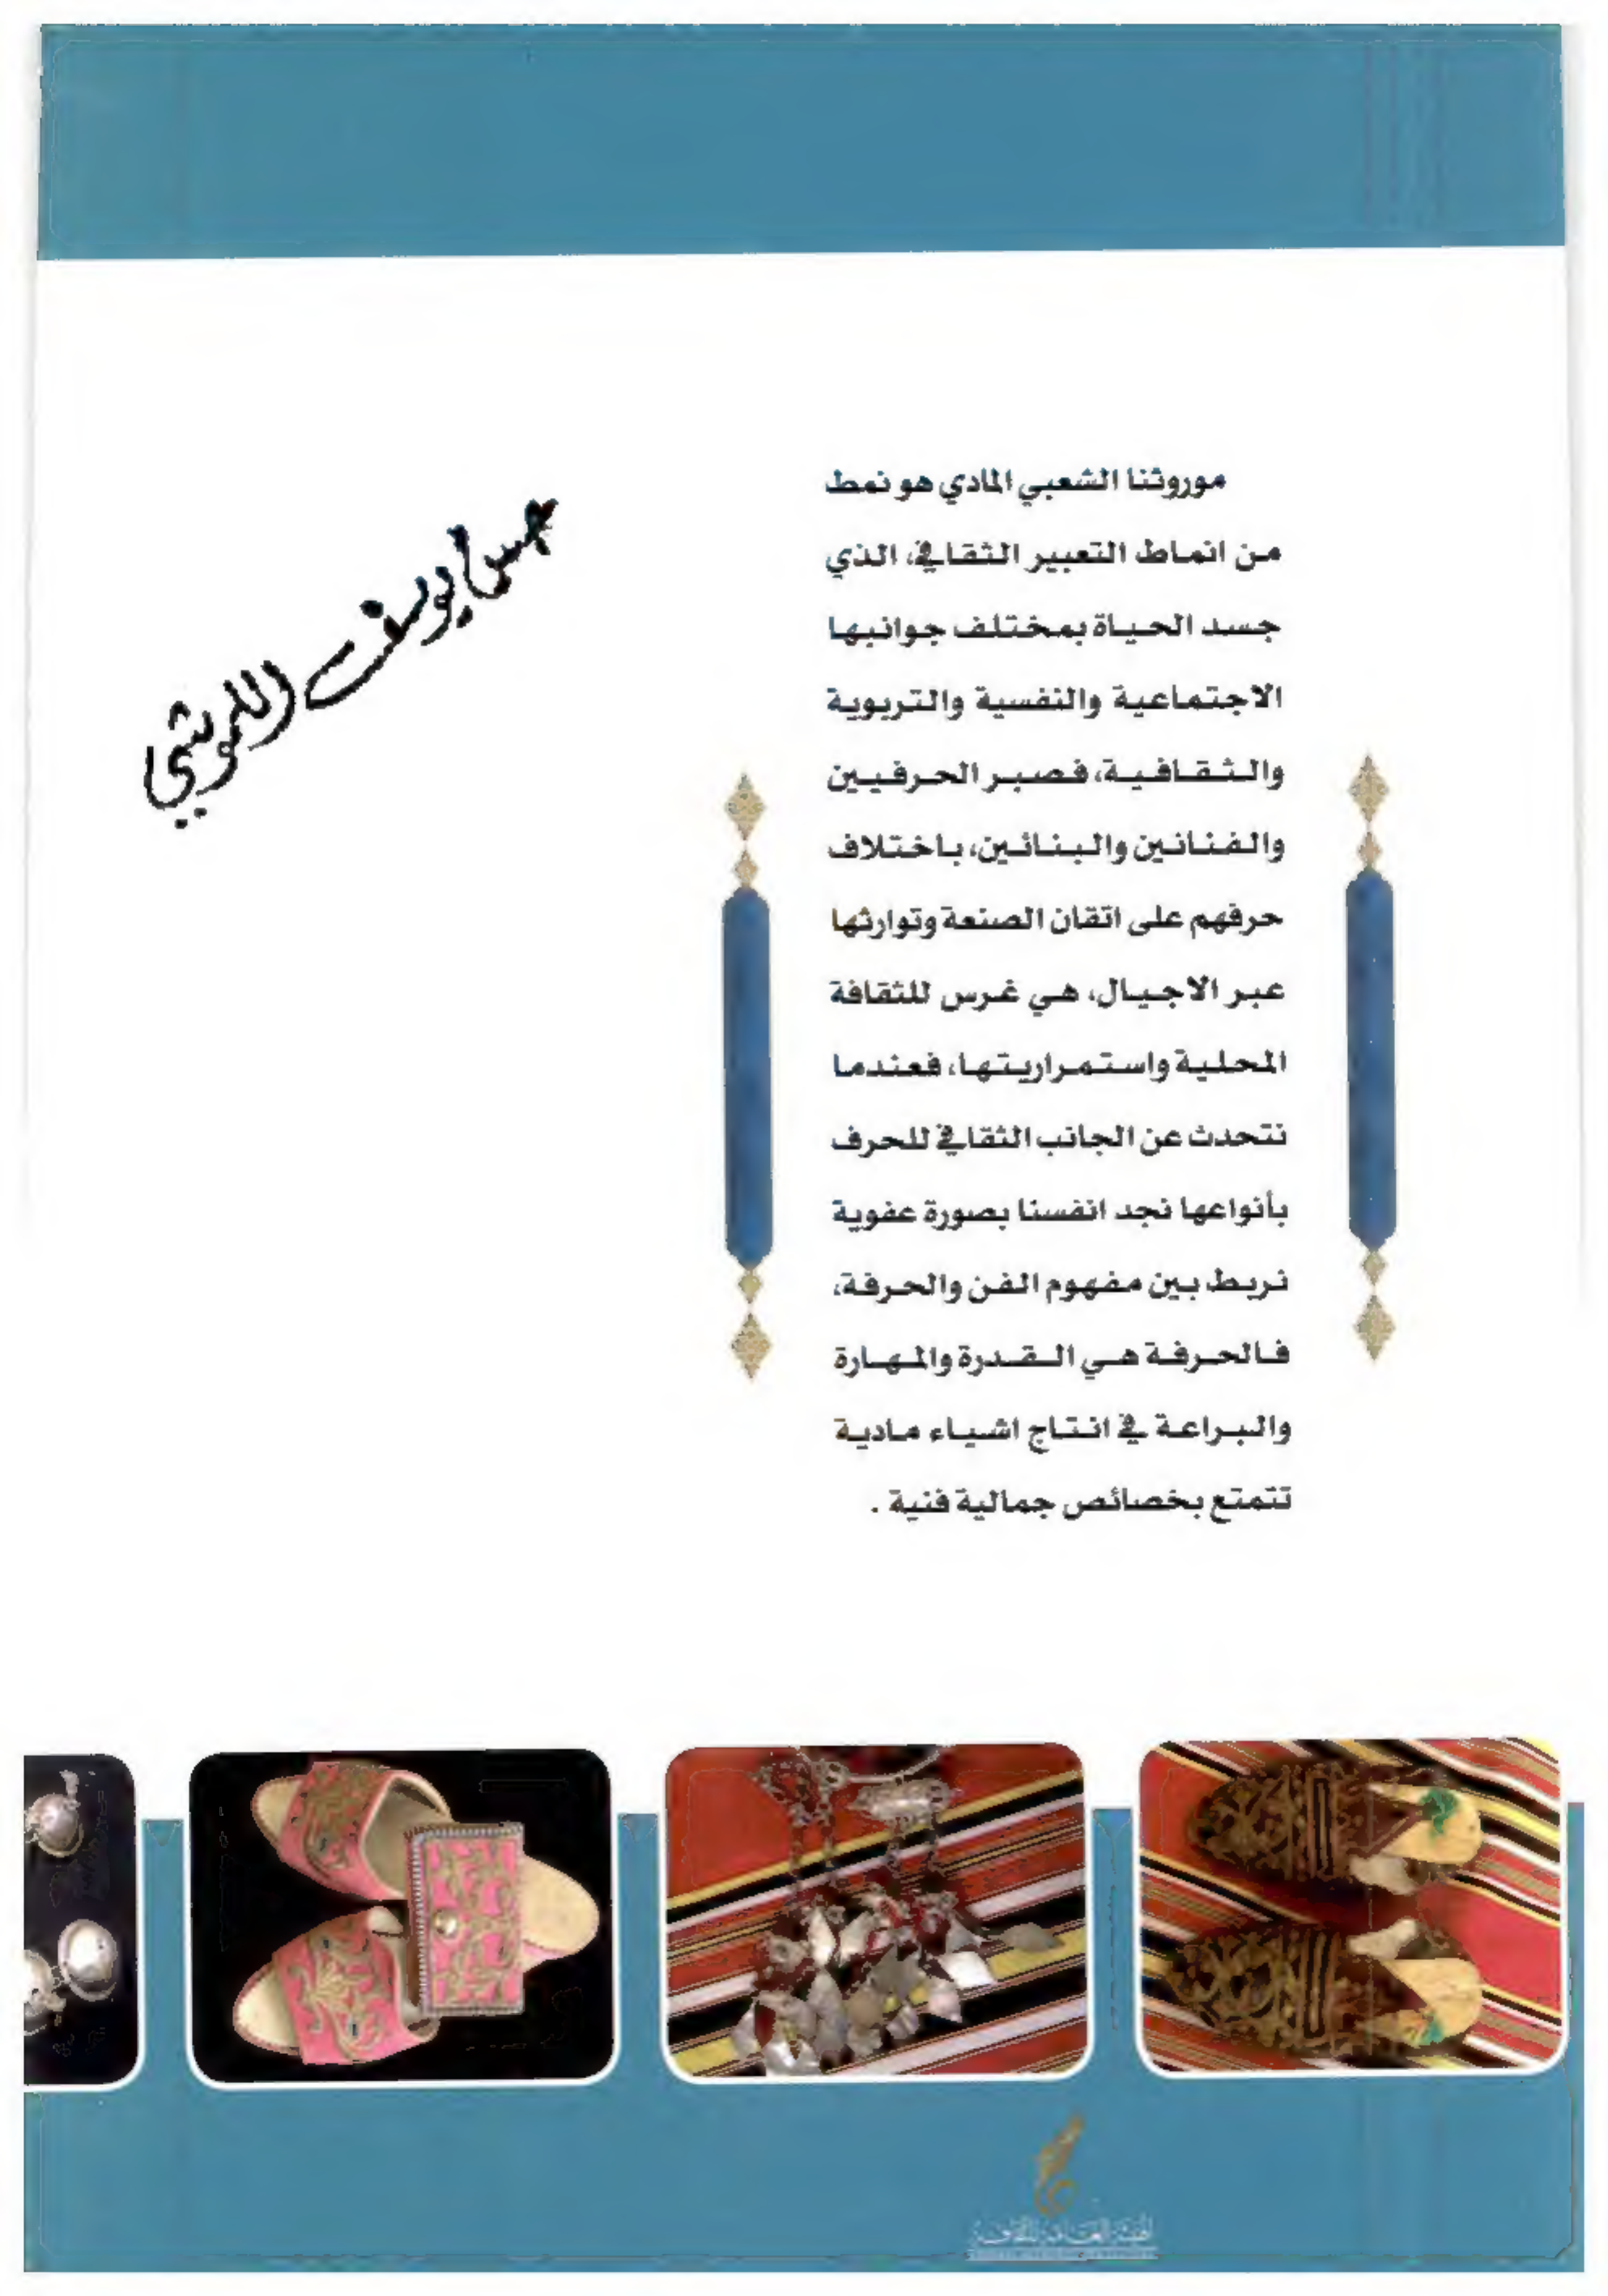 موروثنا الشعبي المادي هو نمط
من انماط التعبير الثقافي، الذي
جسد الحياة بمختلف جوانبها
الاجتماعية والنفسية والتربوية
والثقافية، فصبر الحرفيين
والفنانين والبنائين، باختلاف
حرفهم على اتقان الصنعة وتوارثها
عبر الاجيال، هي غرس للثقافة
المحلية واستمراريتها، فعندما
نتحدث عن الجانب الثقافي للحرف
بأنواعها نجد انفسنا بصورة عفوية
نربط بين مفهوم الفن والحرفة،
فالحرفة هي القدرة والمهارة
والبراعة في انتاج اشياء مادية
تتمتع بخصائص جمالية فنية .
يوسف
الهيئة العامة للثقافة